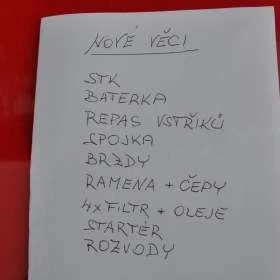 NOVÉ VĚCI
STK
BATERKA
REPAS VSTŘIKŮ
SPOJKA
BRZDY
RAMENA + ČEPY
4x FILTR + OLEJE
STARTÉR
ROZVODY